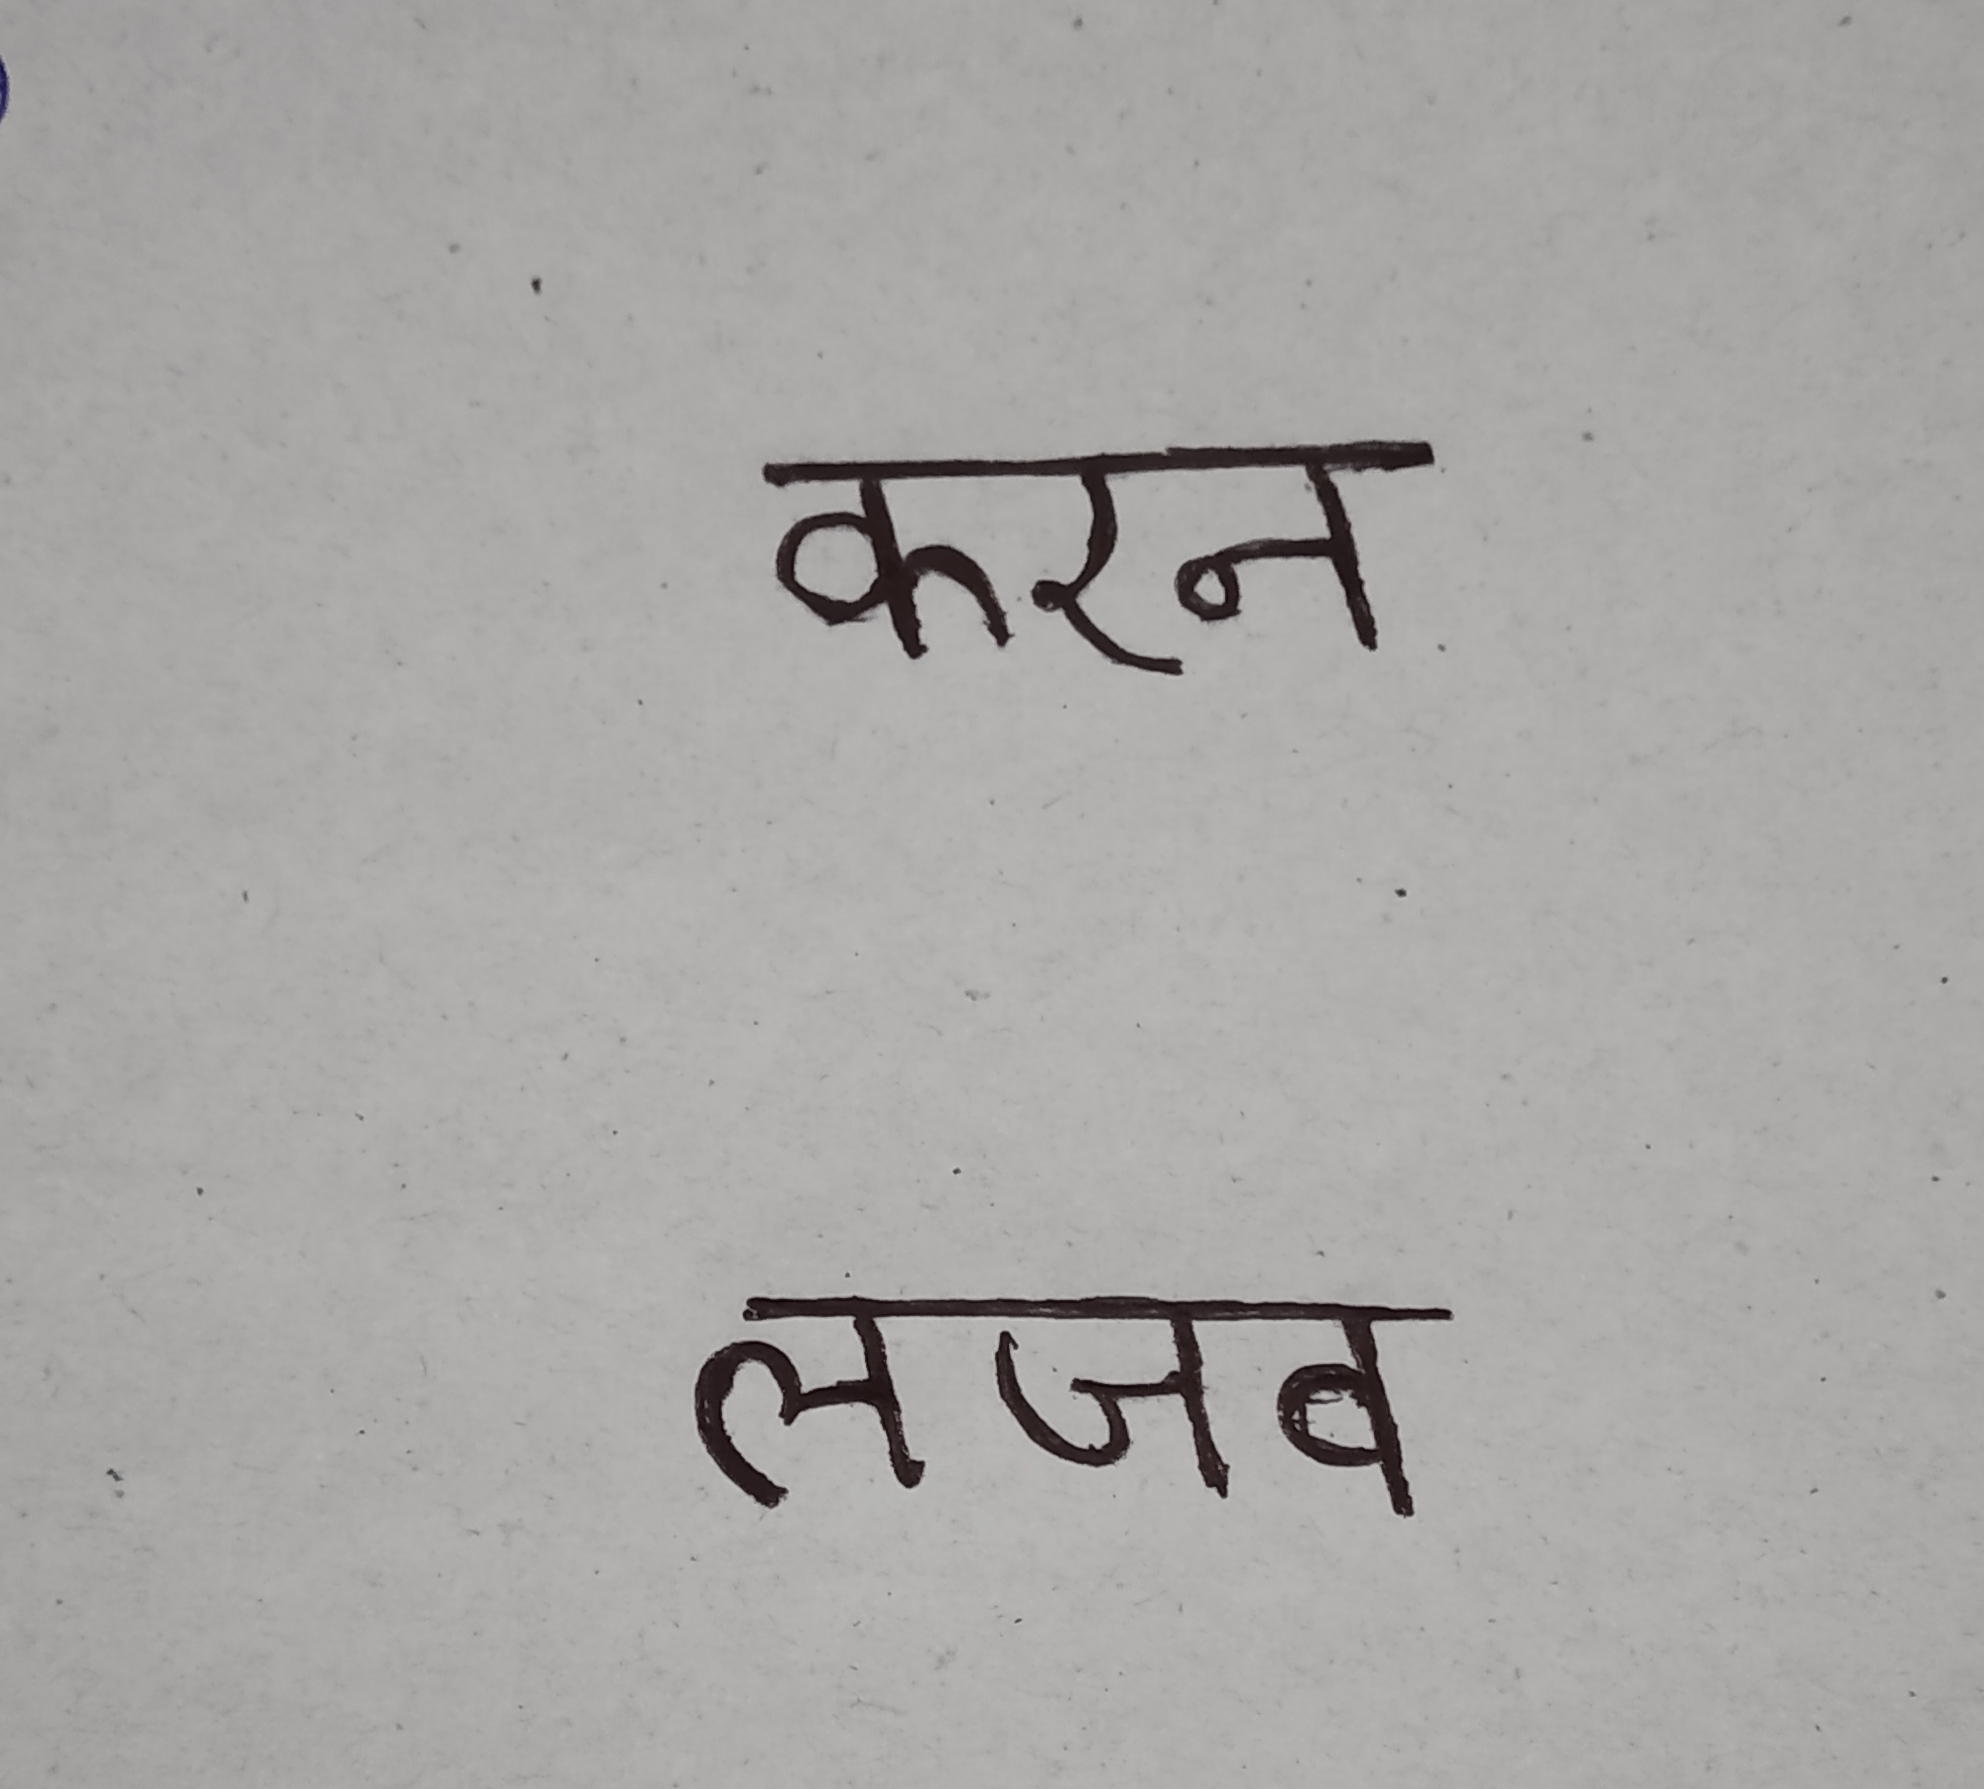 करन
लजब